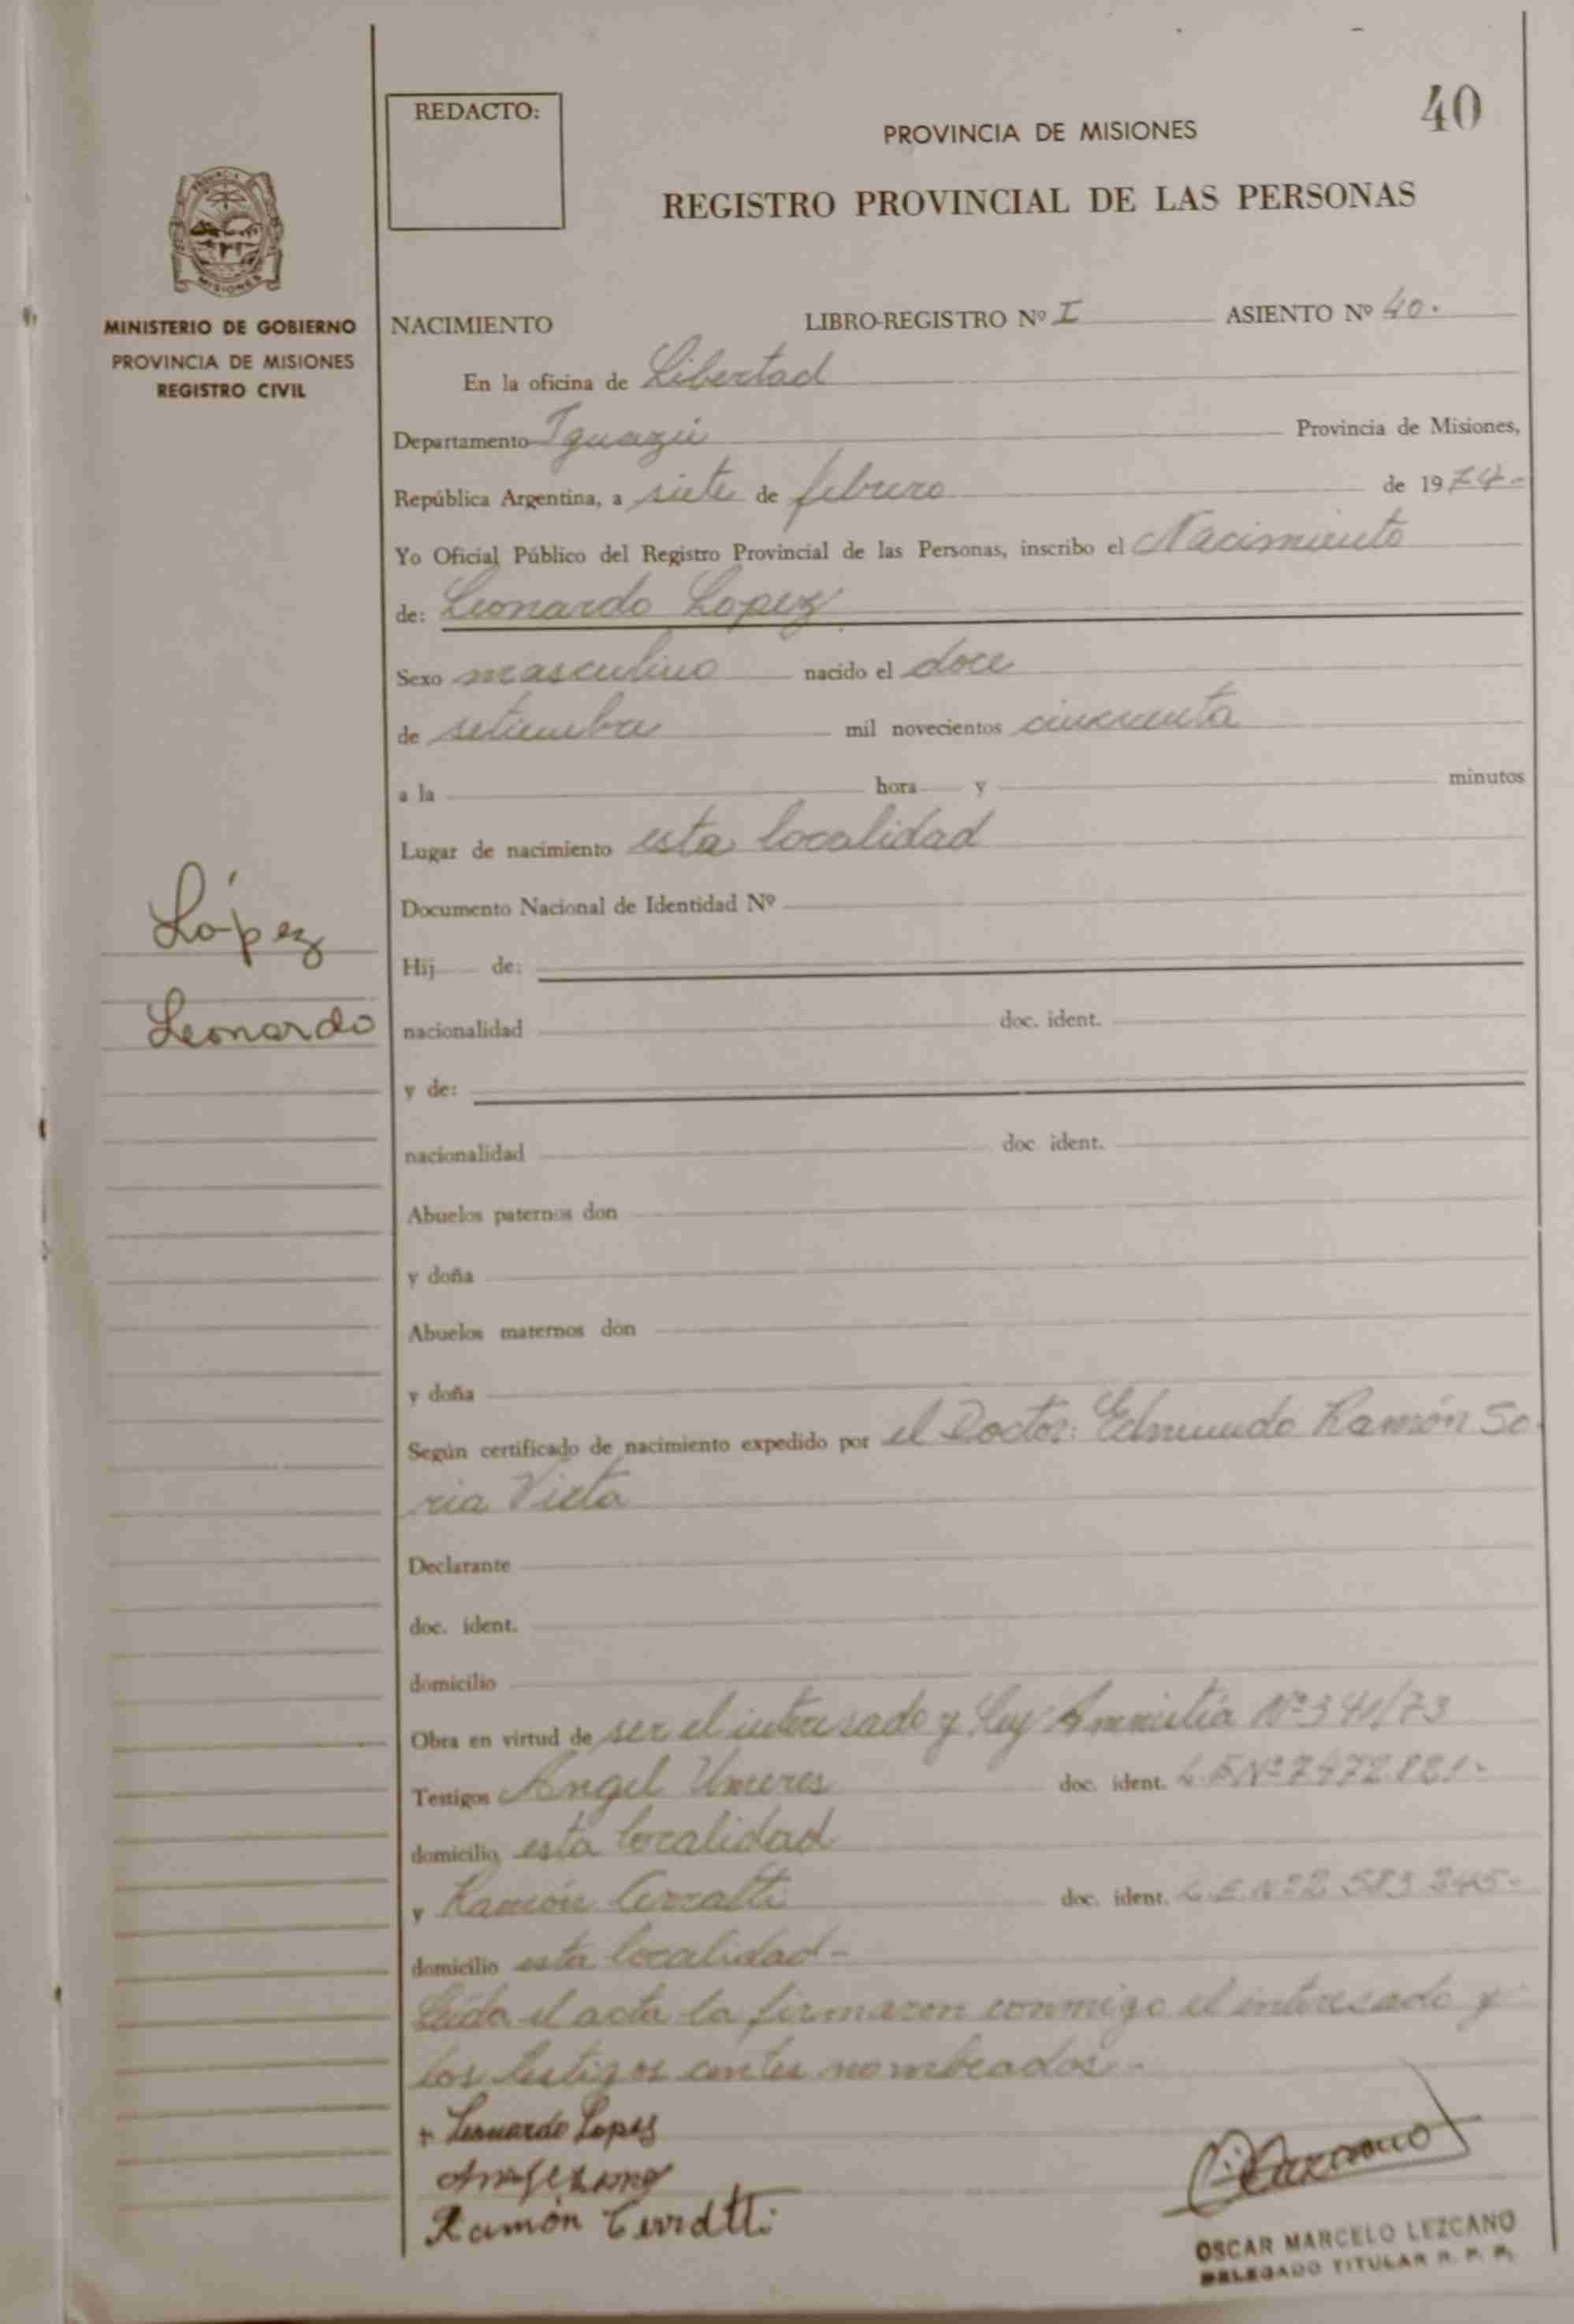 40
REDACTO:
PROVINCIA DE MISIONES
REGISTRO PROVINCIAL DE LAS PERSONAS
MISIONES
MINISTERIO DE GOBIERNO
PROVINCIA DE MISIONES
REGISTRO CIVIL
NACIMIENTO LIBRO-REGISTRO Nº I ASIENTO Nº 40.
En la oficina de Libertad
Departamento Iguazú Provincia de Misiones,
República Argentina, a siete de febrero de 1974-
Yo Oficial Público del Registro Provincial de las Personas, inscribo el Nacimiento
de: Leonardo Lopez
Sexo masculino nacido el doce
de setiembre mil novecientos cincuenta
a la hora y minutos
Lugar de nacimiento esta localidad
Documento Nacional de Identidad Nº
López
Leonardo
Hij de:
nacionalidad doc. ident.
y de:
nacionalidad doc ident.
Abuelos paternos don
y doña
Abuelos maternos don
y doña
Según certificado de nacimiento expedido por el Doctor: Edmundo Ramón So-
ria Vieta
Declarante
doc. ident.
domicilio
Obra en virtud de ser el interesado y Ley Amnistía Nº 341/73
Testigos Angel Umeres doc. ident. L.E Nº 7472821-
domicilio esta localidad
y Ramón Cerratti doc. ident. L.E. Nº 2 583 245-
domicilio esta localidad-
Leida el acta la firmaron conmigo el interesado y
los testigos antes nombrados.-
+ Leonardo Lopez
Ramón Cerratti
OSCAR MARCELO LEZCANO
DELEGADO TITULAR R. P. P.